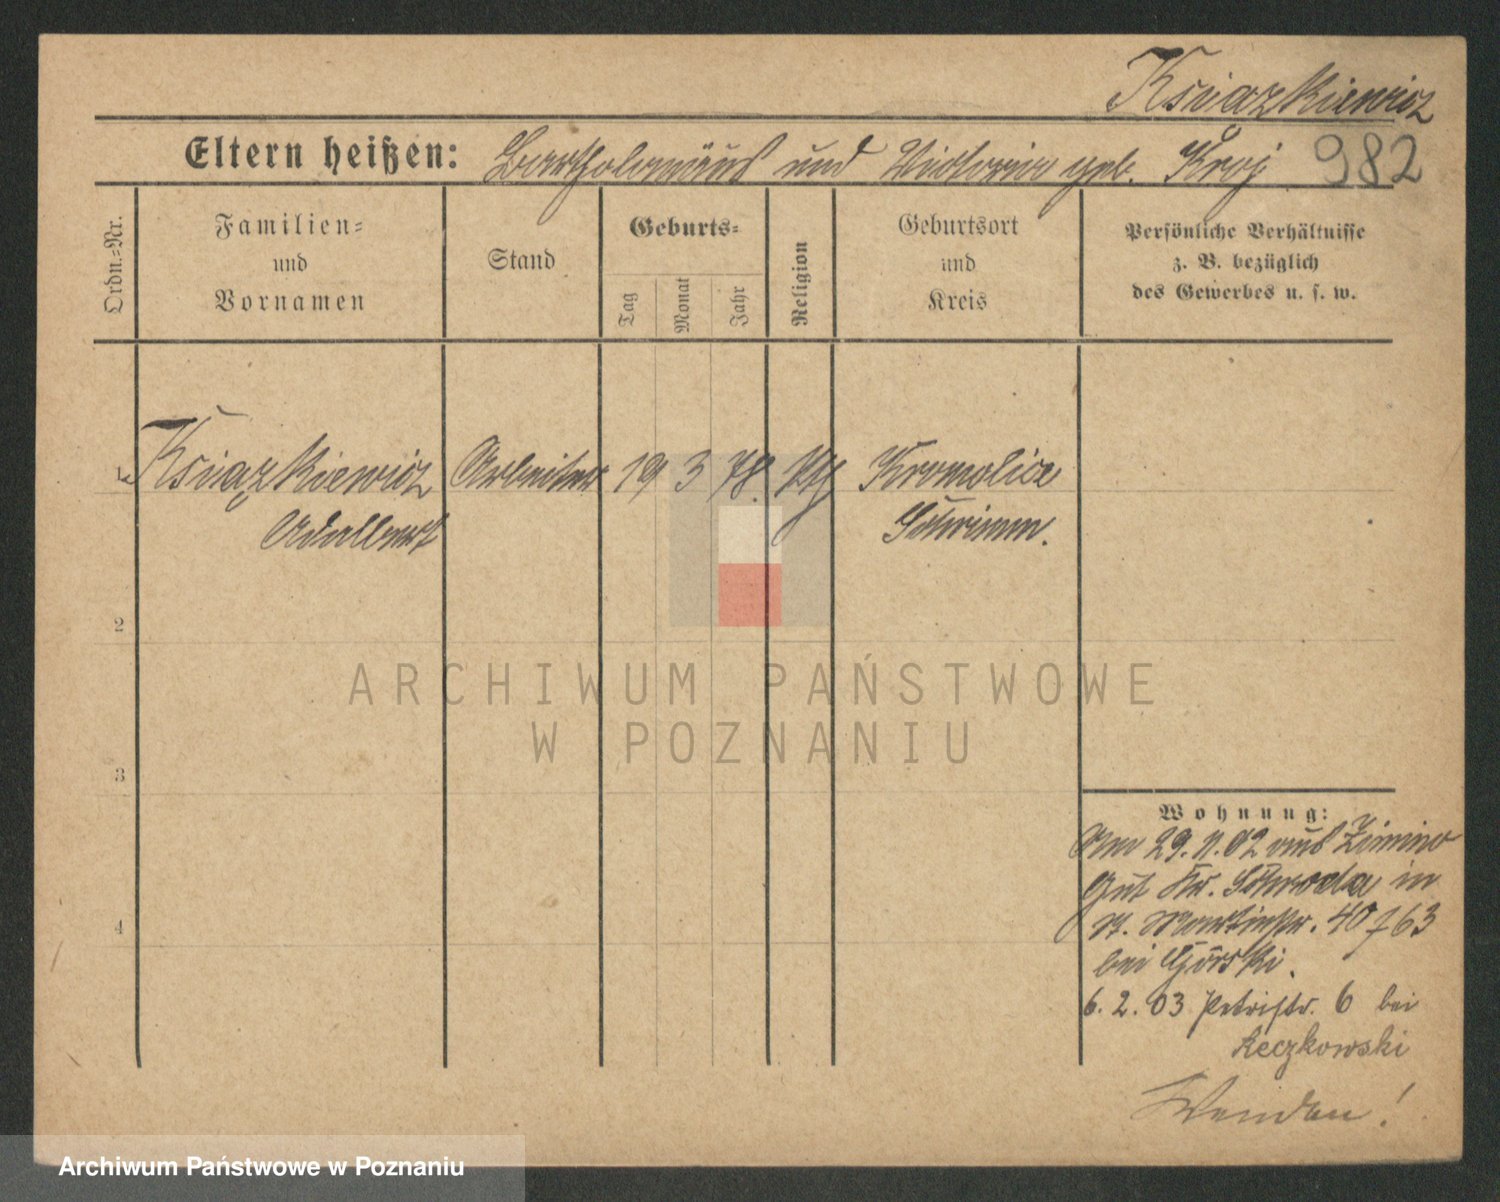 Ksiazkiewicz
Eltern heißen: Bartholomäus und Victoria geb. Kroj 982
Ordn.-Nr.
Familien-
und
Vornamen
Stand
Geburts-
Tag
Monat
Jahr
Religion
Geburtsort
und
Kreis
Persönliche Verhältnisse
z. B. bezüglich
des Gewerbes u. s. w.
1 Ksiazkiewicz Arbeiter 19 3 78. kth Kromolice
Adalbert Schrimm.
2
3
4
ARCHIWUM PAŃSTWOWE
W POZNANIU
Wohnung:
Am 29. 11. 02 aus Zimino
Gut Kr. Schroda in
St. Martinstr. 40 763
bei Górski.
6. 2. 03 Petristr. 6 bei
Reczkowski
Archiwum Państwowe w Poznaniu